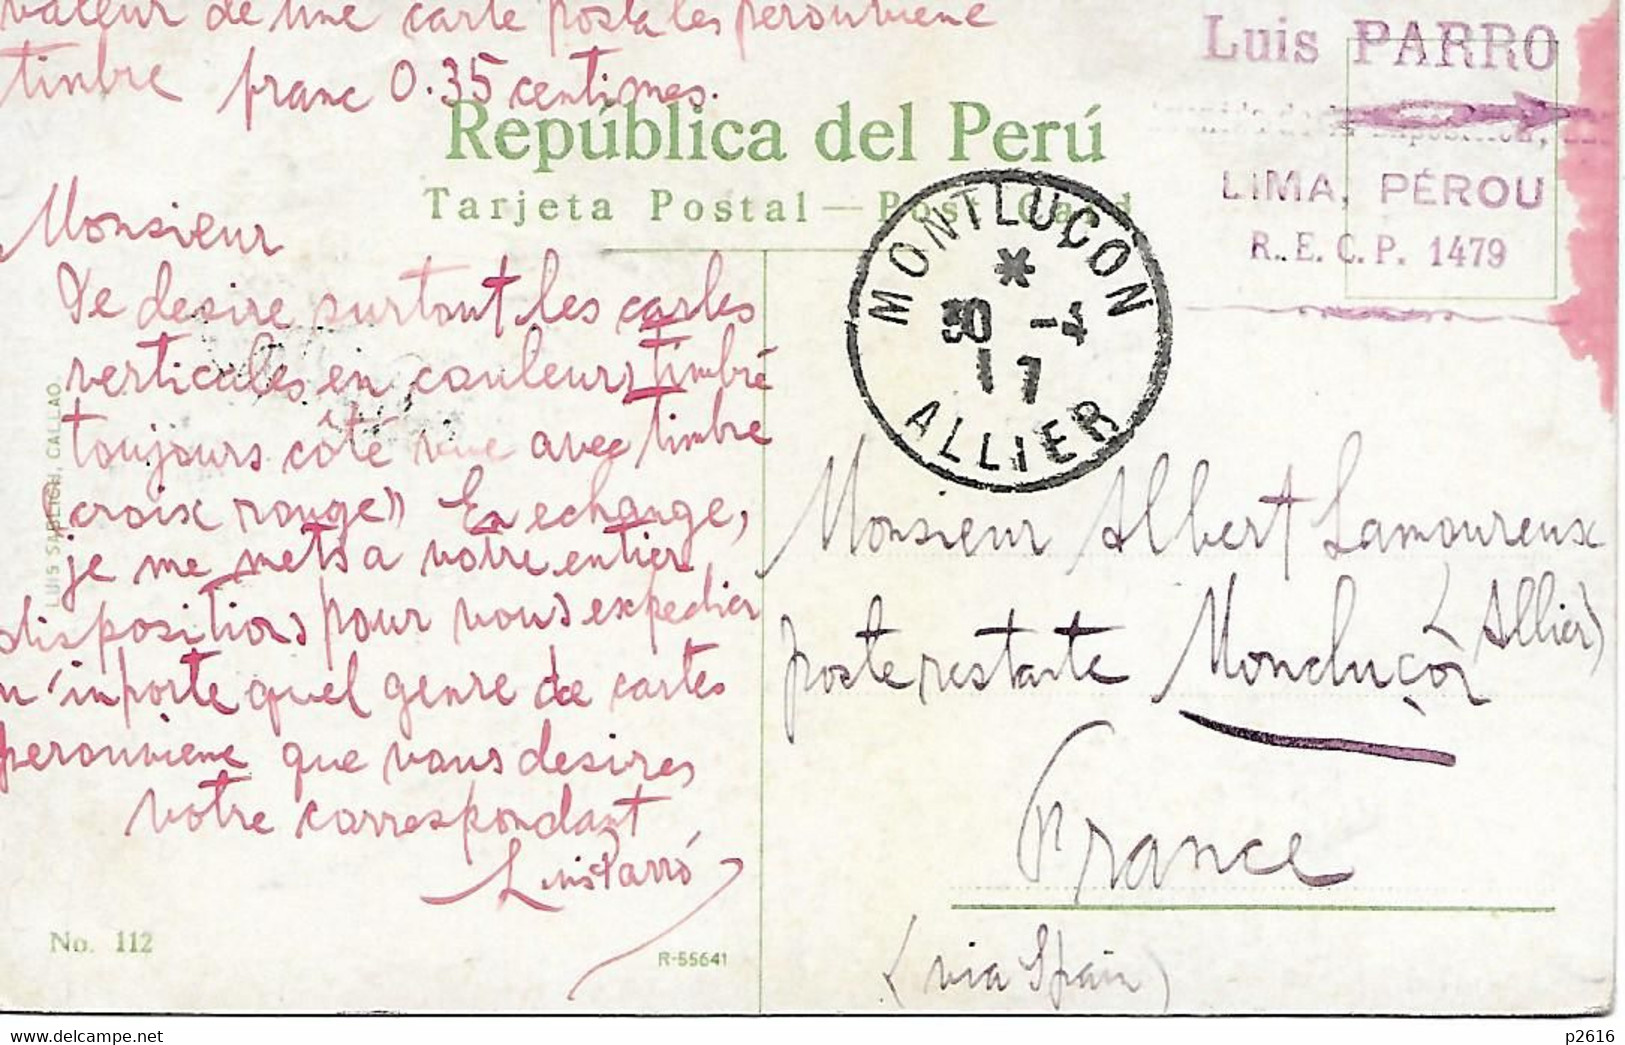 valeur de une carte postales perouviene
timbre franc 0.35 centimes.
República del Perú
Tarjeta Postal — Post Card
Luis PARRO
LIMA, PÉROU
R. E. C. P. 1479
MONTLUÇON
30 -4
17
ALLIER
Monsieur
Je desire surtout les cartes
verticales en couleurs timbré
toujours côté vue avec timbre
croix rouge)) En echange,
je me mets a votre entier
disposition pour vous expedier
n'inporte quel genre de cartes
perouviene que vous desires
votre correspondant
Luis Parró
Monsieur Albert Lamoureux
poste restante Moncluçon
(Allier)
France
(via Spain)
LUIS SABLICH, CALLAO.
No. 112
R-55641
delcampe.net
p2616